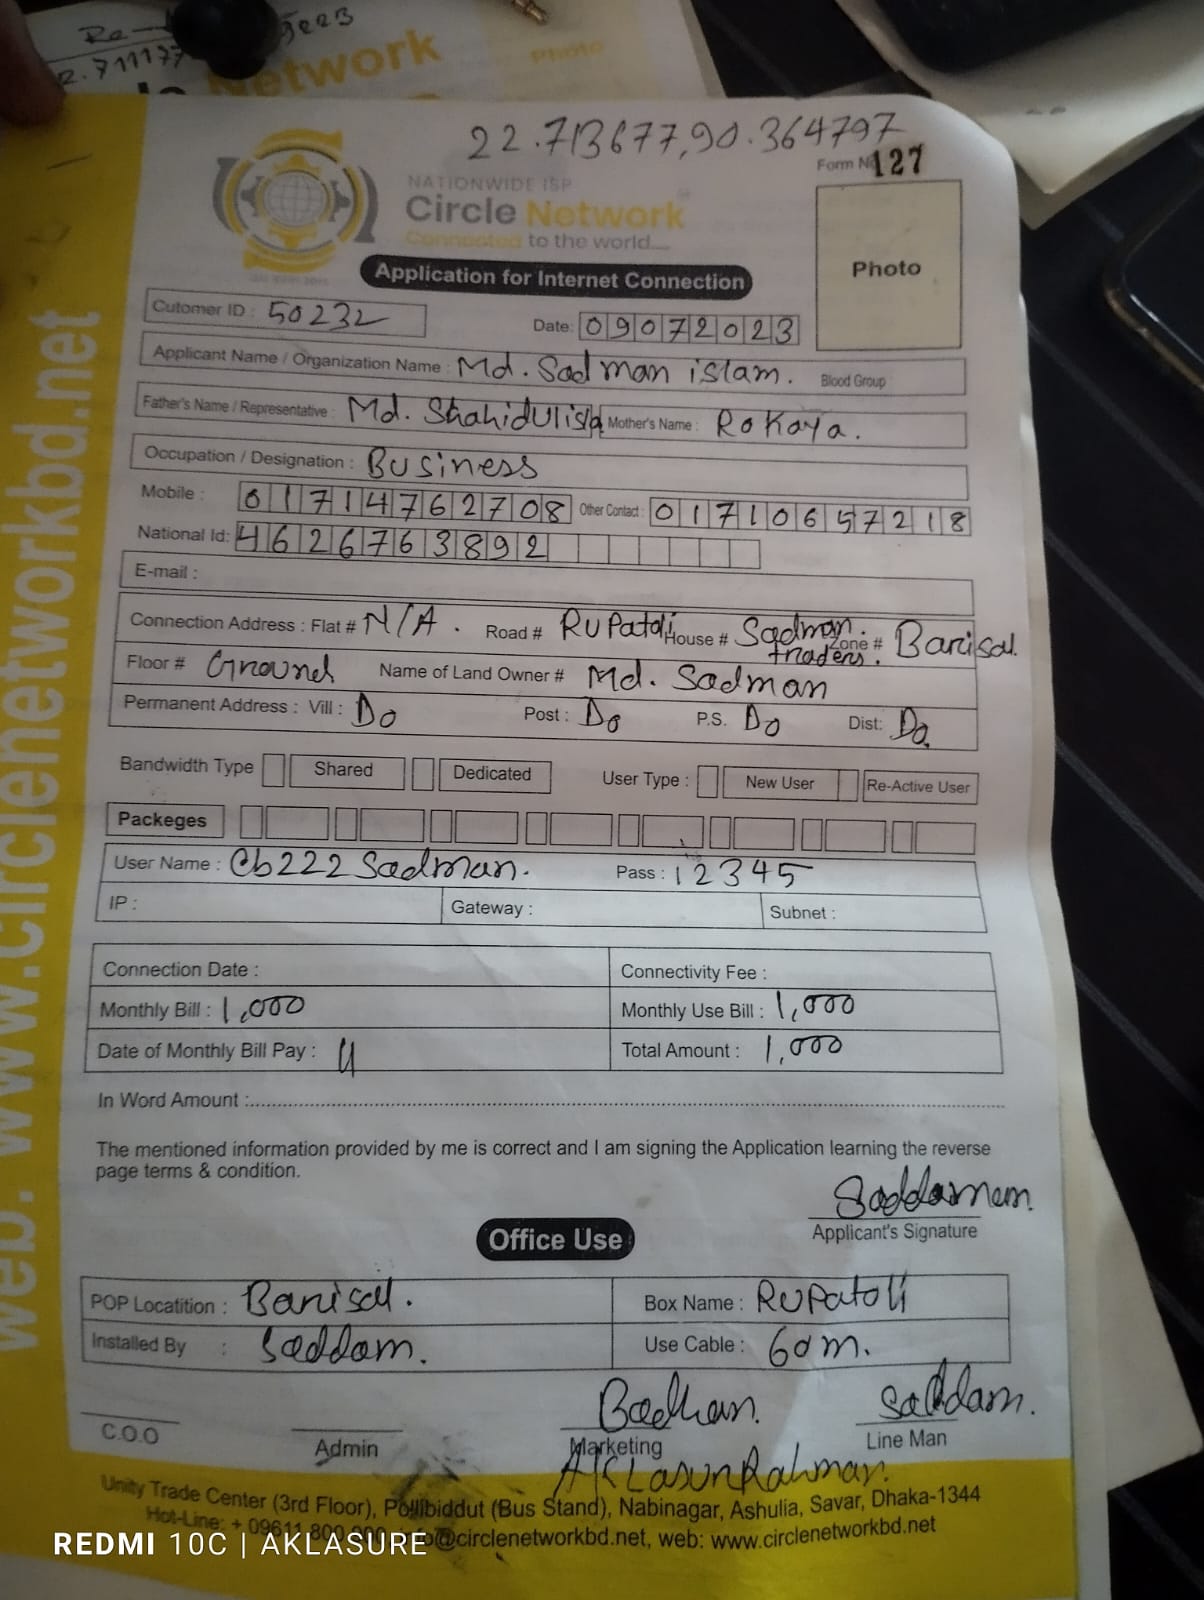 22.713677,90.364797
Form No 127
NATIONWIDE ISP
Circle Network
Connected to the world....
Application for Internet Connection
Photo
Cutomer ID : 50232
Date: 09072023
Applicant Name / Organization Name : Md. Sadman islam. Blood Group
Father's Name / Representative : Md. Shahidulisla Mother's Name : Rokaya.
Occupation / Designation : Business
Mobile : 01714762708 Other Contact : 01710657218
National Id: 4626763892
E-mail :
Connection Address : Flat # N/A . Road # Rupatoli House # Sadman traders. Zone # Barisal.
Floor # Ground Name of Land Owner # Md. Sadman
Permanent Address : Vill : Do Post : Do P.S. Do Dist: Do
Bandwidth Type Shared Dedicated User Type : New User Re-Active User
Packeges
User Name : Cb222 Sadman. Pass : 12345
IP : Gateway : Subnet :
Connection Date : Connectivity Fee :
Monthly Bill : 1,000 Monthly Use Bill : 1,000
Date of Monthly Bill Pay : Total Amount : 1,000
In Word Amount :
The mentioned information provided by me is correct and I am signing the Application learning the reverse
page terms & condition.
Applicant's Signature
Office Use
POP Locatition : Barisal. Box Name : Rupatoli
Installed By : Saddam. Use Cable : 60m.
Badhan. Saddam.
C.O.O Admin Marketing Line Man
Unity Trade Center (3rd Floor), Pollibiddut (Bus Stand), Nabinagar, Ashulia, Savar, Dhaka-1344
Hot-Line: + 09611 800 @circlenetworkbd.net, web: www.circlenetworkbd.net
web: www.circlenetworkbd.net
REDMI 10C | AKLASURE
Network
PHOTO